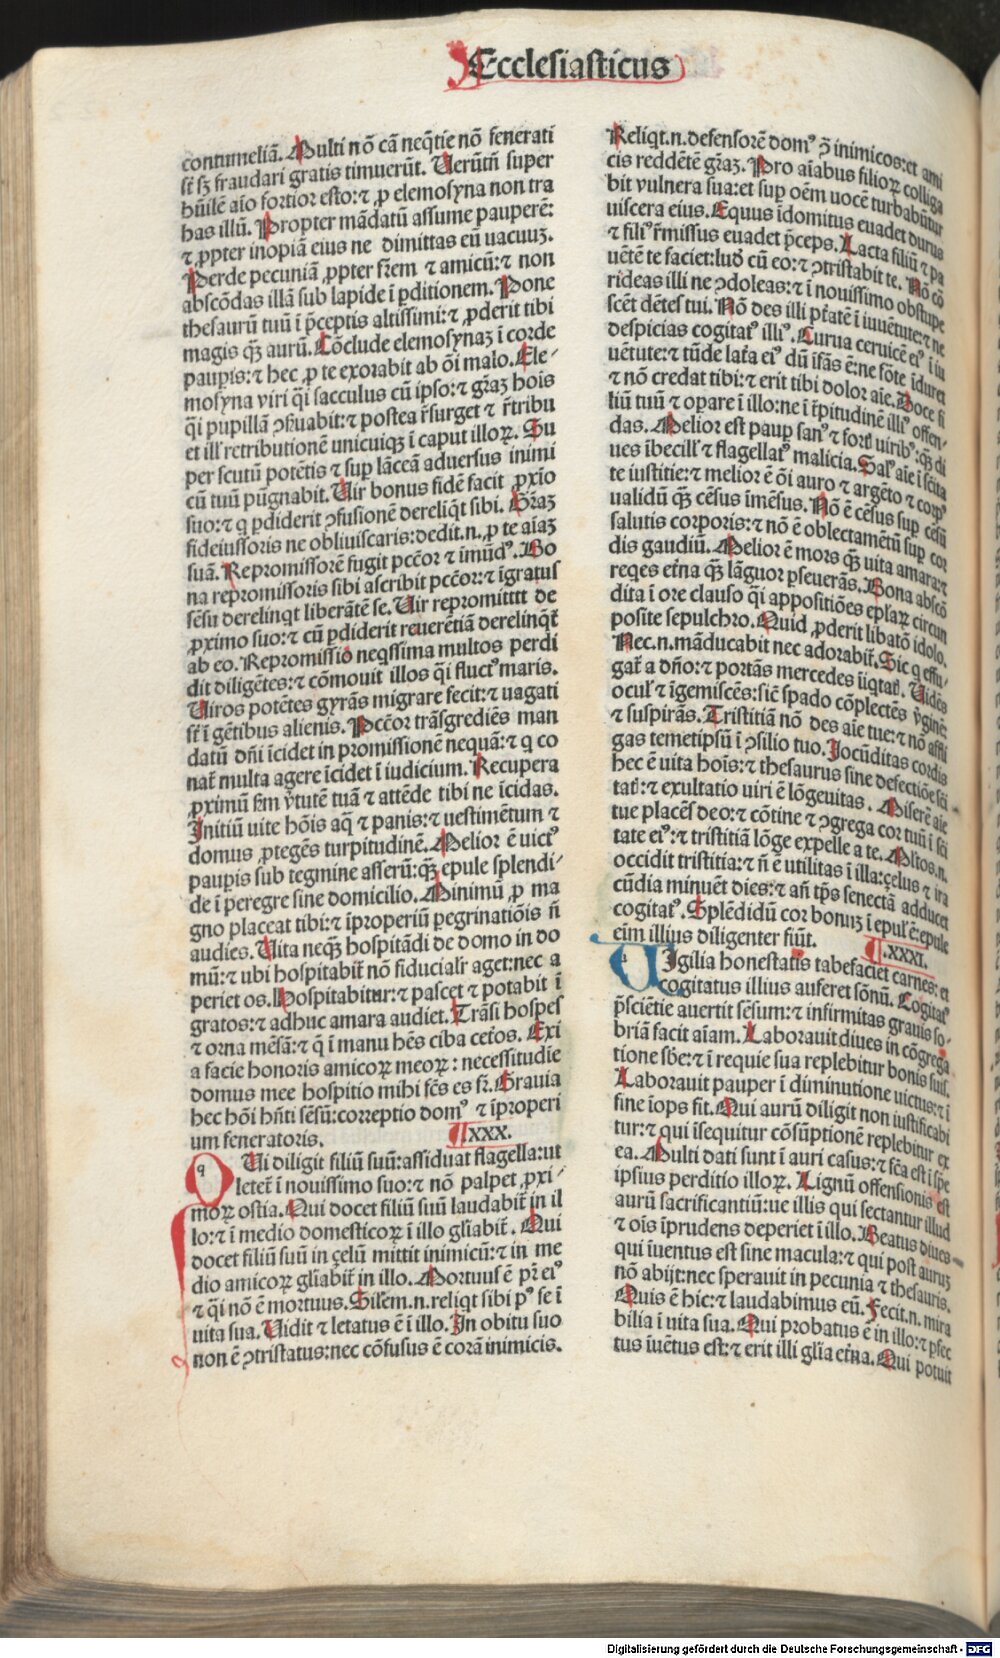 Ecclesiasticus
contumeliā. Multi nō cā neq̄tie nō fenerati
sūt sꝫ fraudari gratis timuerūt. Uerūtñ super
hūilē aīo fortior esto: ⁊ ꝓ elemosyna non tra
has illū. Propter mādatū assume pauperē:
⁊ ꝓpter inopiā eius ne dimittas eū uacuuꝫ.
Perde pecuniā ꝓpter frēm ⁊ amicū: ⁊ non
abscōdas illā sub lapide ī ꝑditionem. Pone
thesaurū tuū ī p̄ceptis altissimi: ⁊ ꝓderit tibi
magis qꝫ aurū. Cōclude elemosynaꝫ ī corde
pauꝑis: ⁊ hec ꝓ te exorabit ab ōi malo. Ele⸗
mosyna viri q̄i sacculus cū ipso: ⁊ grāꝫ hoīs
q̄i pupillā ꝯßuabit: ⁊ postea r̄surget ⁊ r̄tribu
et ill' retributionē unicuiqꝫ ī caput illoꝝ. Su
per scutū potētis ⁊ suꝑ lāceā adversus inimi
cū tuū pūgnabit. Uir bonus fidē facit ꝓxīo
suo: ⁊ q ꝑdiderit ꝯfusionē dereliq̄t sibi. Grāꝫ
fideiussoris ne obliuiscaris: dedit.n. ꝓ te aīaꝫ
suā. Repromissorē fugit pccōr ⁊ īmūdꝰ. Bo
na repromissoris sibi ascribit pccōr: ⁊ īgratus
sēsu derelinqt liberātē se. Uir repromitttt de
ꝓximo suo: ⁊ cū ꝑdiderit reuerētiā derelinq̄t
ab eo. Repromissio neqssima multos perdi
dit diligētes: ⁊ cōmouit illos q̄i fluctꝰ maris.
Uiros potētes gyrās migrare fecit: ⁊ uagati
sūt ī gētibus alienis. Pccōr trāsgrediēs man
datū dñi īcidet in promissionē nequā: ⁊ q co
nat̄ multa agere īcidet ī iudicium. Recupera
ꝓximū ßm v̄tutē tuā ⁊ attēde tibi ne īcidas.
Initiū uite hōis aq̄ ⁊ panis: ⁊ uestimētum ⁊
domus ꝓtegēs turpitudinē. Melior ē uictꝰ
pauꝑis sub tegmine asserū: qꝫ epule splendi⸗
de ī peregre sine domicilio. Minimū ꝓ ma
gno placeat tibi: ⁊ īproperiū ꝑegrinatiōis ñ
audies. Uita neqꝫ hospitādi de domo in do
mū: ⁊ ubi hospitabit̄ nō fiducialr̄ aget: nec a
periet os. Hospitabitur: ⁊ pascet ⁊ potabit ī
gratos: ⁊ adhuc amara audiet. Trāsi hospes
⁊ orna mēsā: ⁊ q̄ ī manu hēs ciba cet̄os. Exi
a facie honoris amicoꝝ meoꝝ: necessitudīe
domus mee hospitio mihi fcēs es fr̄. Grauia
hec hōi hñti sēsū: correptio domꝰ ⁊ īproperi
um feneratoris. ¶ XXX.
QUi diligit filiū suū: assiduat flagella: ut
letet̄ ī nouissimo suo: ⁊ nō palpet ꝓxi⸗
moꝝ ostia. Qui docet filiū suū laudabit̄ in il
lo: ⁊ ī medio domesticoꝝ ī illo glīabit̄. Qui
docet filiū suū in çelū mittit inimicū: ⁊ in me
dio amicoꝝ glīabit̄ in illo. Mortuus ē pr̄ eiꝰ
⁊ q̄i nō ē mortuus. Silem.n. reliqt sibi pꝰ se ī
uita sua. Uidit ⁊ letatus ē ī illo. In obitu suo
non ē ꝯtristatus: nec cōfusus ē corā inimicis.
Reliqt.n. defensorē domꝰ ꝯ̄ inimicos: et ami
cis reddētē grāꝫ. Pro aīabus filioꝝ colliga
bit vulnera sua: et suꝑ oēm uocē turbabūtur
uiscera eius. Equus īdomitus euadet durus
⁊ filiꝰ r̄missus euadet p̄ceps. Lacta filiū ⁊ pa
uētē te faciet: lud̄ cū eo: ⁊ ꝯtristabit te. Nō cō
rideas illi ne ꝯdoleas: ⁊ ī nouissimo obstupe
scēt dētes tui. Nō des illi pt̄atē ī iuuētute: ⁊ ne
despicias cogitatꝰ illiꝰ. Curua ceruicē eiꝰ ī iu
uētute: ⁊ tūde lat̄a eiꝰ dū īfās ē: ne fōte īduret
⁊ nō credat tibi: ⁊ erit tibi dolor aīe. Doce fi
liū tuū ⁊ opare ī illo: ne ī t̄pitudinē illiꝰ offen⸗
das. Melior est pauꝑ sanꝰ ⁊ fortꝭ uiribꝰ: qꝫ di
ues ībecill' ⁊ flagellatꝰ malicia. Salꝰ aīe ī sc̄ita
te iustitie: ⁊ melior ē ōi auro ⁊ argēto ⁊ corpꝰ
ualidū qꝫ cēsus īmēsus. Nō ē cēsus suꝑ cēsū
salutis corporis: ⁊ nō ē oblectamētū suꝑ cor
dis gaudiū. Melior ē mors qꝫ uita amara: ⁊
reqes et̄na qꝫ lāguor ꝑseuerās. Bona abscō
dita ī ore clauso q̄i appositiōes epl'aꝝ circun
posite sepulchro. Quid ꝓderit libatō idolo.
Nec.n. māducabit nec adorabit̄. Sic q effu⸗
gat̄ a dño: ⁊ portās mercedes īiqtat̄. Uidēs
ocul' ⁊ īgemiscēs: sic̄ spado cōplectēs v̄ginē:
⁊ suspirās. Tristitiā nō des aīe tue: ⁊ nō affli
gas temetipsū ī ꝯsilio tuo. Iocūditas cordis
hec ē uita hoīs: ⁊ thesaurus sine defectiōe sc̄i
tat̄: ⁊ exultatio uiri ē lōgeuitas. Miserē aīe
tue placēs deo: ⁊ cōtine ⁊ ꝯgrega cor tuū ī sc̄i
tate eiꝰ: ⁊ tristitiā lōge expelle a te. Mltos.n.
occidit tristitia: ⁊ ñ ē utilitas ī illa: çelus ⁊ ira
cūdia minuēt dies: ⁊ añ tp̄s senectā adducet
cogitatꝰ. Splēdidū cor bonuꝫ ī epul' ē: epule
eim illius diligenter fiūt. ¶ .XXXI.
UIgilia honestatis tabefaciet carnes: et
cogitatus illius auferet sōnū. Cogitatꝰ
p̄sciētie auertit sēsum: ⁊ infirmitas grauis so⸗
briā facit aīam. Laborauit diues in cōgrega
tione sbē: ⁊ ī requie sua replebitur bonis suis.
Laborauit pauper ī diminutione uictus: ⁊ ī
fine īops fit. Qui aurū diligit non iustificabi
tur: ⁊ qui īsequitur cōsūptionē replebitur ex
ea. Multi dati sunt ī auri casus: ⁊ fcā est ī spē
ipsius perditio illoꝝ. Lignū offensionis est
aurū sacrificantiū: ue illis qui sectantur illud
⁊ oīs īprudens deperiet ī illo. Beatus diues
qui īuentus est sine macula: ⁊ qui post auruꝫ
nō abijt: nec sperauit in pecunia ⁊ thesauris.
Quis ē hic: ⁊ laudabimus eū. Fecit.n. mira
bilia ī uita sua. Qui probatus ē in illo: ⁊ ꝑfec
tus īuētus est: ⁊ erit illi glīa et̄na. Qui potuit
Digitalisierung gefördert durch die Deutsche Forschungsgemeinschaft - DFG